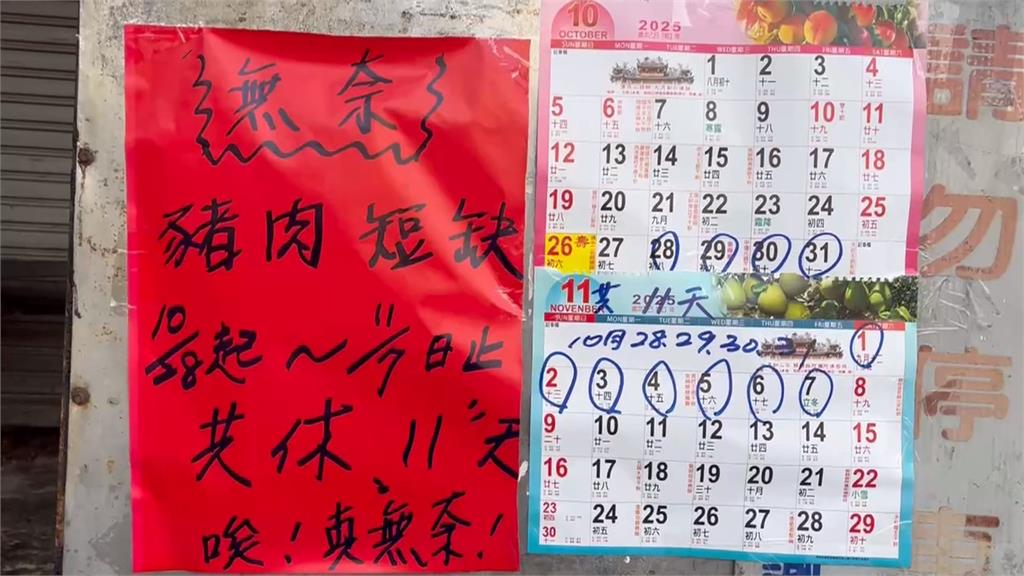 無奈
豬肉短缺
10/28起～11/7日止
共休11天
唉！真無奈！
10
OCTOBER
2025
SUN星期日 MON星期一 TUE星期二 WED星期三 THU星期四 FRI星期五 SAT星期六
1 2 3 4
八月初十 十一 十二 十三
5 6 7 8 9 10 11
十四 十五 十六 寒露 十八 十九 二十
12 13 14 15 16 17 18
廿一 廿二 廿三 廿四 廿五 廿六 廿七
19 20 21 22 23 24 25
廿八 廿九 九月 初二 霜降 初四 初五
26 27 28 29 30 31
初六 初七 初八
11
NOVENBER
2025
共11天
SUN星期日 MON星期一 TUE星期二 WED星期三 THU星期四 FRI星期五 SAT星期六
10月28.29.30.31
1
十二
2 3 4 5 6 7 8
十三 十四 十五 十六 十七 立冬 十九
9 10 11 12 13 14 15
二十 廿一 廿二 廿三 廿四 廿五 廿六
16 17 18 19 20 21 22
廿七 廿八 廿九 三十 十月 初二 小雪
23 24 25 26 27 28 29
初四 初五 初六 初七 初八 初九 初十
30
十一
請勿停車